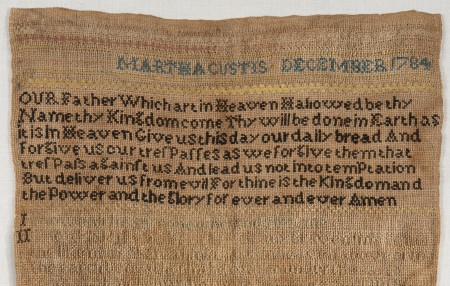 MARTHA CUSTIS DECEMBER 1784
OUR Father Which art in Heaven Hallowed be thy
Name thy Kingdom come Thy will be done in Earth as
it is In Heaven Give us this day our daily bread And
forgive us our trespasses as we forgive them that
trespass against us And lead us not into temptation
But deliver us from evil For thine is the Kingdom and
the Power and the Glory for ever and ever Amen
I
II